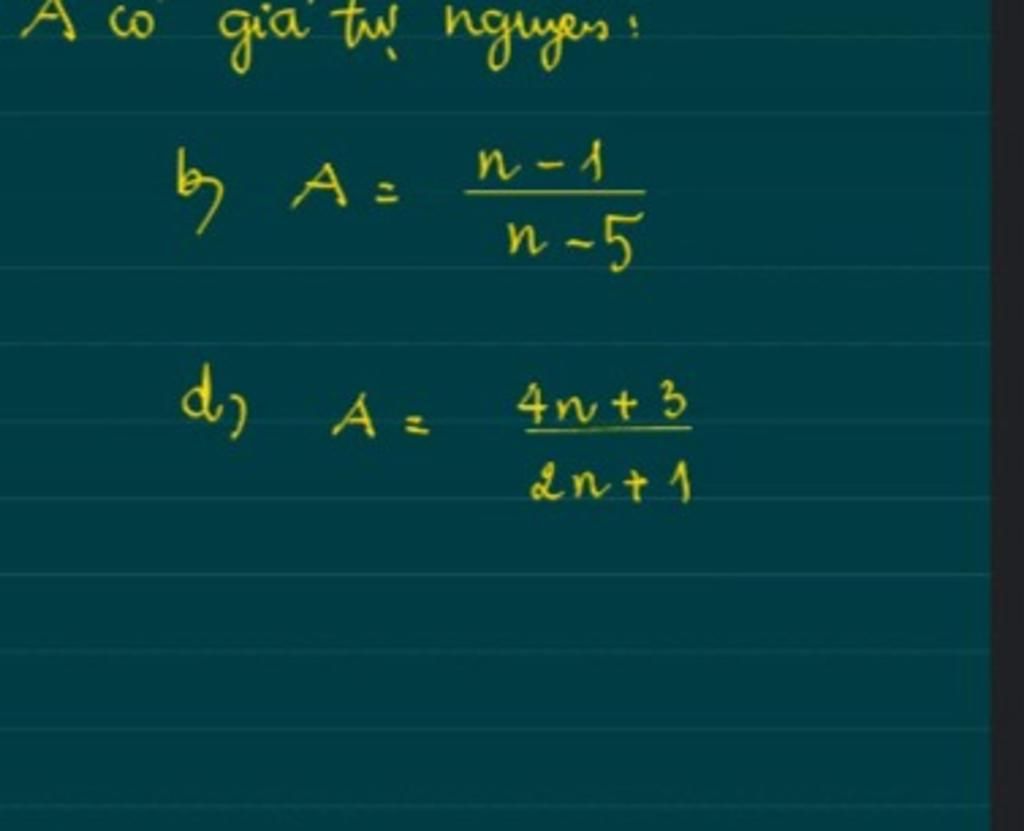 A có giá trị nguyên:
b) A = \frac{n-1}{n-5}
d) A = \frac{4n+3}{2n+1}